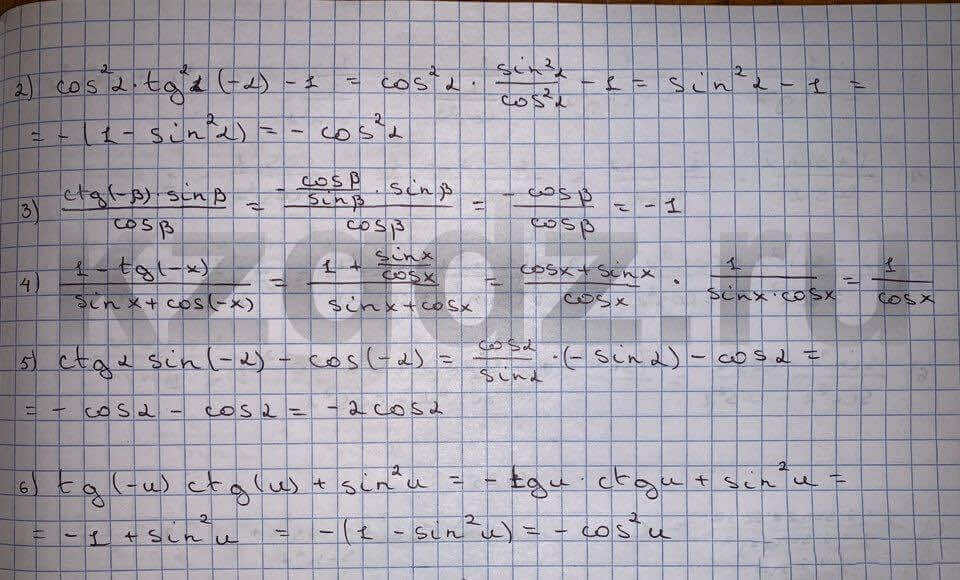 2) cos²α · tg²(-α) - 1 = cos²α · sin²α/cos²α - 1 = sin²α - 1 =
= - (1 - sin²α) = - cos²α
3) ctg(-β) · sinβ / cosβ = - cosβ/sinβ · sinβ / cosβ = - cosβ / cosβ = -1
4) 1 - tg(-x) / sinx + cos(-x) = 1 + sinx/cosx / sinx + cosx = cosx + sinx / cosx · 1 / sinx · cosx = 1 / cosx
5) ctgα sin(-α) - cos(-α) = cosα/sinα · (-sinα) - cosα =
= - cosα - cosα = -2cosα
6) tg(-u) ctg(u) + sin²u = -tgu · ctgu + sin²u =
= -1 + sin²u = -(1 - sin²u) = - cos²u
kzgdz.ru